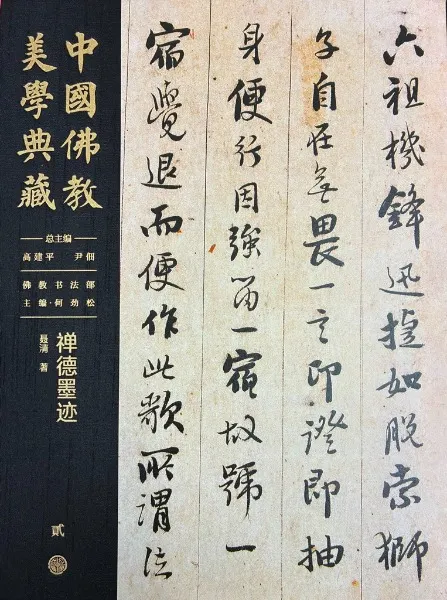 中國佛教
美學典藏
总主编
高建平 尹佃
佛教书法部
主编·何劲松
禅德墨迹
聂清 著
貳
六祖機鋒迅捷如脱索獅
子自在無畏一言印證即抽
身便行因強留一宿故號一
宿覺退而便作此歌所謂法